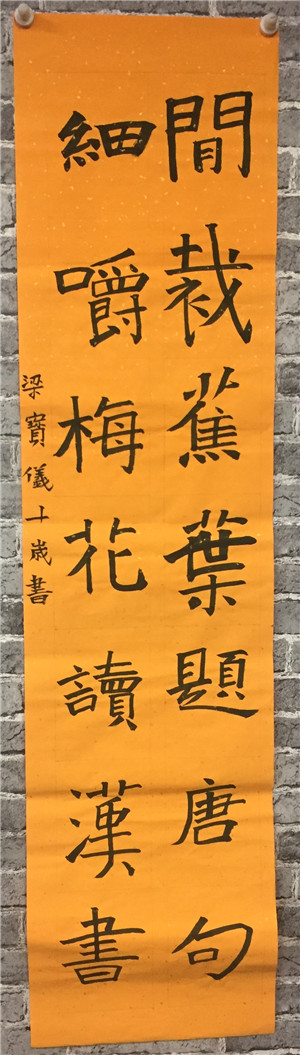 間裁蕉葉題唐句
細嚼梅花讀漢書
梁寶儀十歲書